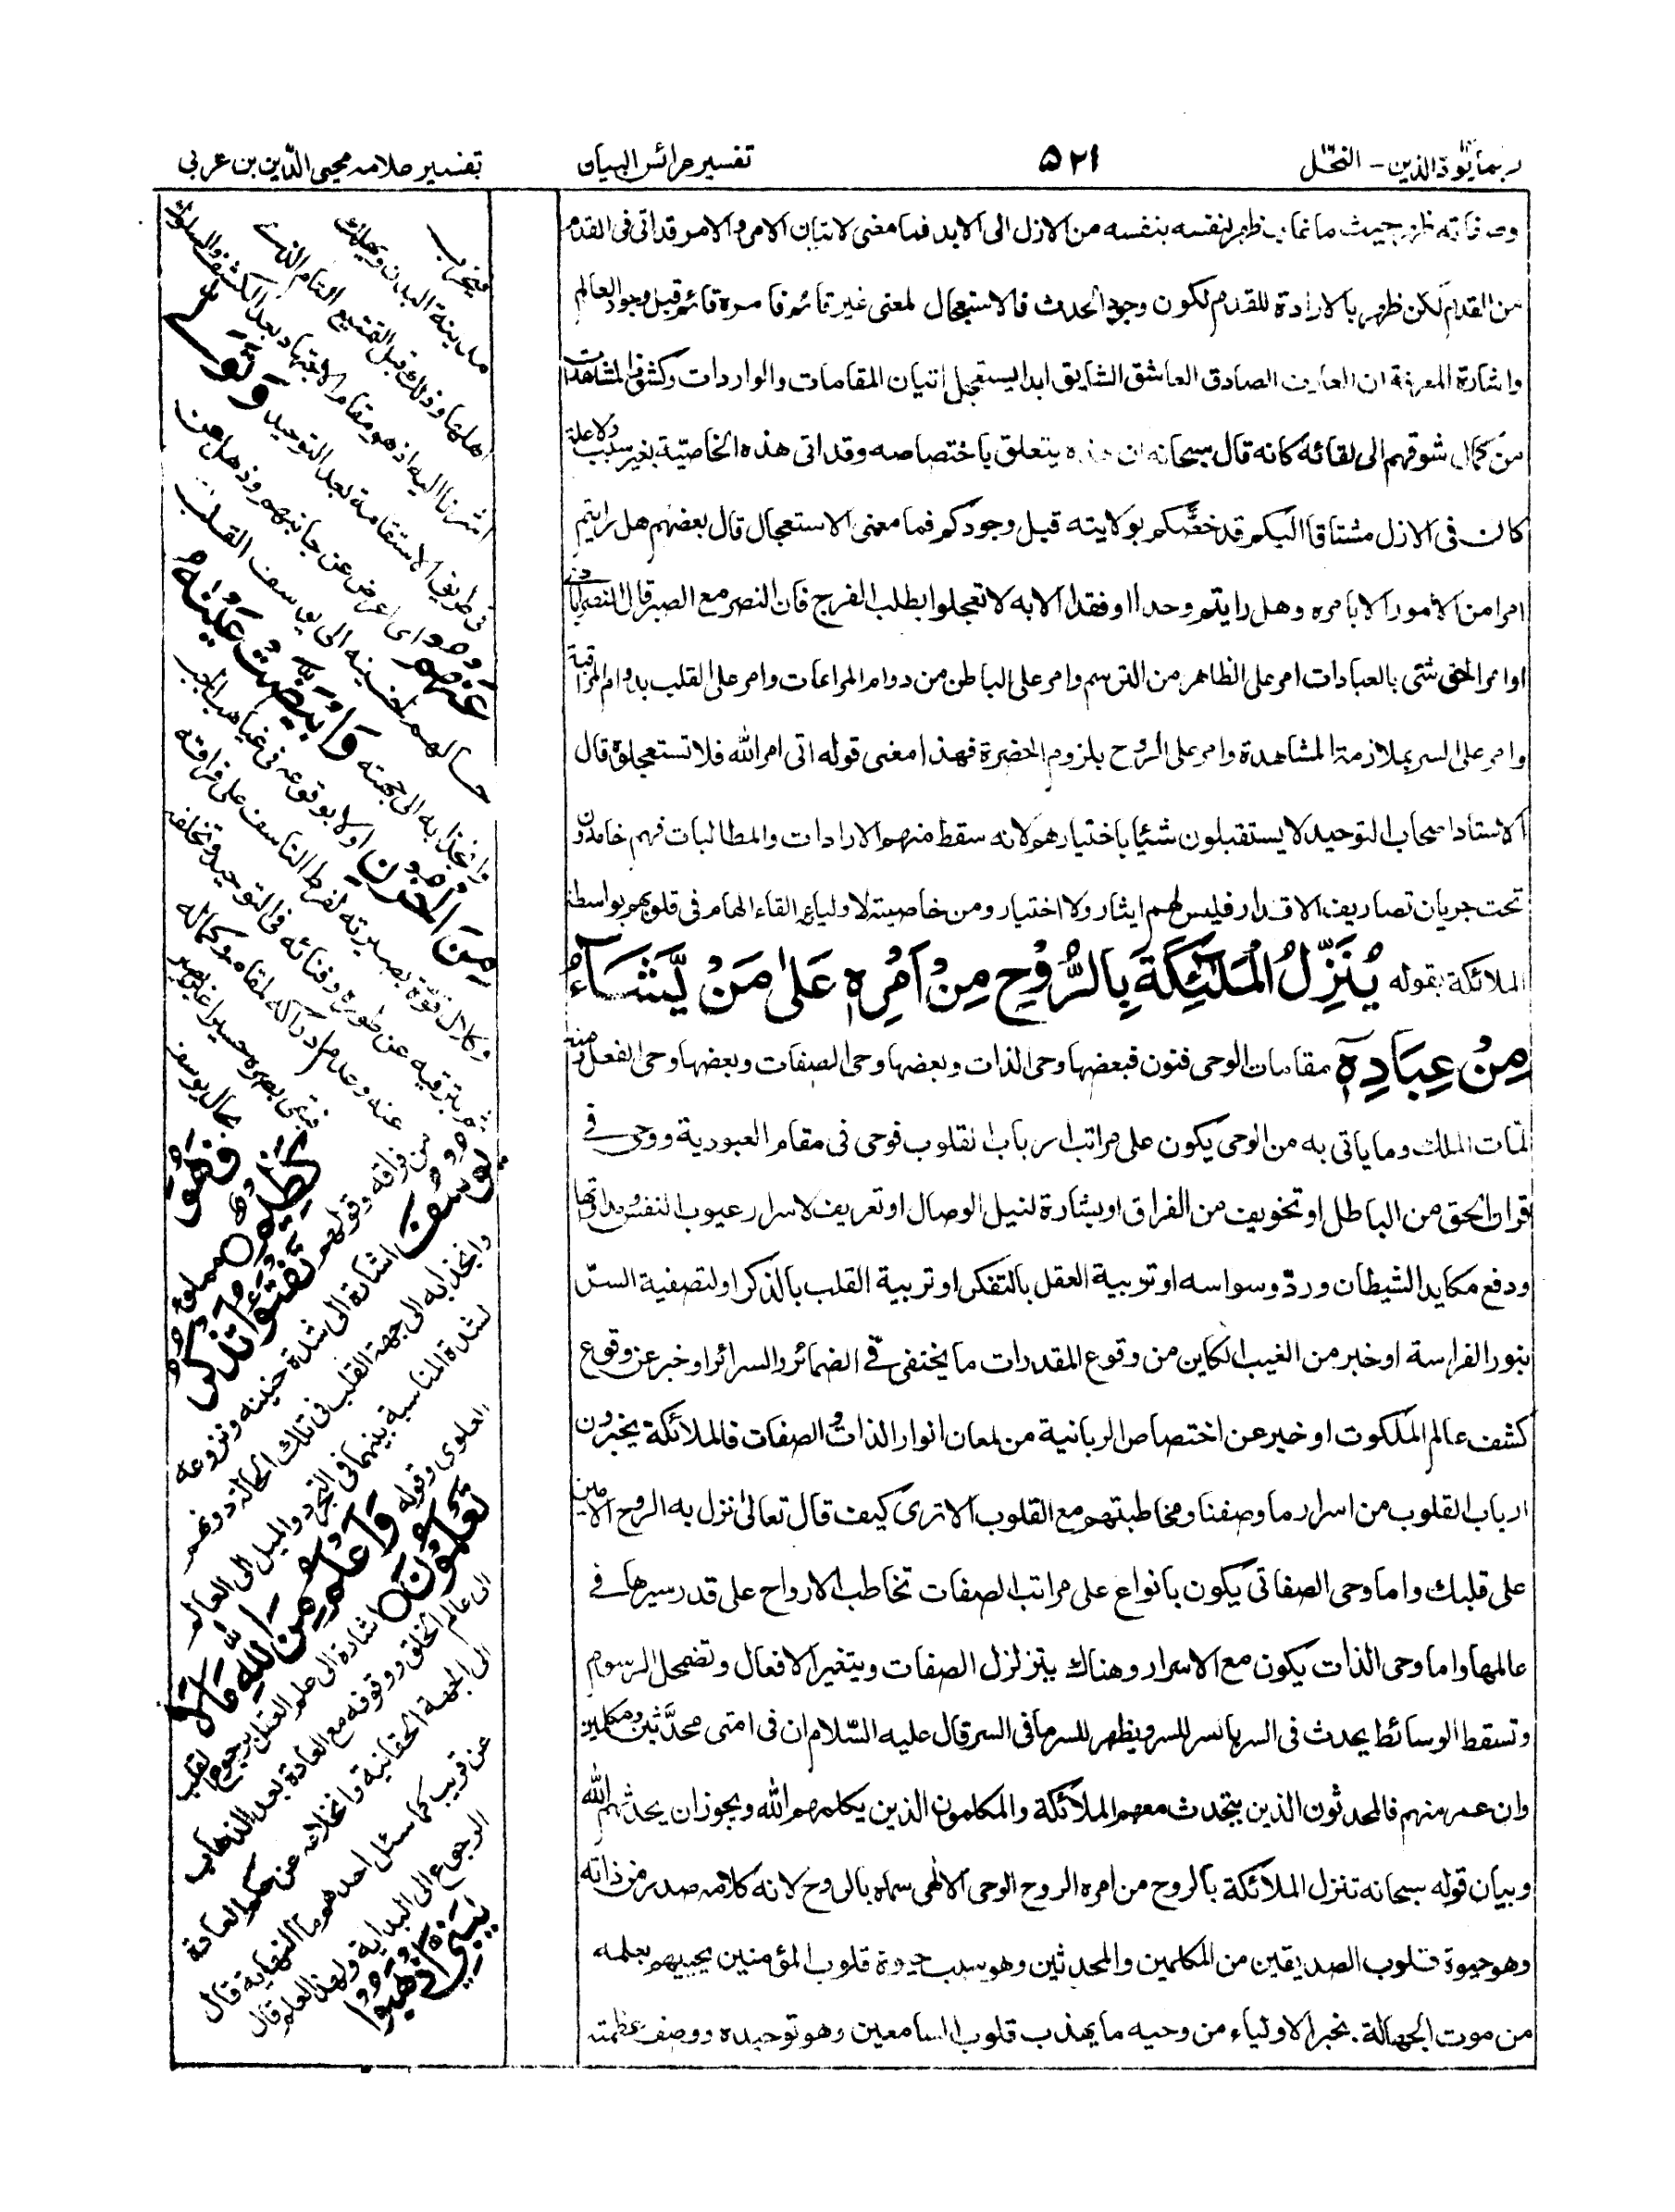 ربما يود الذين - النحل ٥٢١ تفسير عرائس البيان تفسير علامه محيي الدين بن عربي
وصفاته ظهر بحيث ما غاب ظهر لنفسه بنفسه من الازل الى الابد فما معنى لاتيان الامر والامر قد اتى فى القدم
من القدم لكن ظهر بالارادة للقدم لكون وجود الحدث فالاستعجال لمعنى غير قائم فامره قائم قبل وجود العالم
واشارة المعرفة ان العارف الصادق العاشق الشايق ابدا يستعجل اتيان المقامات والواردات وكشف المشاهدات
من كمال شوقهم الى لقائه كانه قال سبحانه ان هذه يتعلق باختصاصه وقد اتى هذه الخاصية بغير سبب ولا علة
كان فى الازل مشتاقا اليكم قد خصكم بولايته قبل وجودكم فما معنى الاستعجال قال بعضهم هل رايتم
امرا من الأمور الا بامره وهل رايتم وحدا او فقدا الا به لا تعجلوا بطلب الفرج فان النصر مع الصبر قال
اوامر الحق شتى بالعبادات امر على الظاهر من الترسم وامر على الباطن من دوام المراعات وامر على القلب بدوام المراقبة
وامر على السر بملازمة المشاهدة وامر على الروح بلزوم الحضرة فهذا معنى قوله اتى امر الله فلا تستعجلوه قال
الاستاد اصحاب التوحيد لا يستقبلون شيئا باختيارهم لانه سقط منهم الارادات والمطالبات فهم خامدون
تحت جريان تصاريف الاقدار فليس لهم ايثار ولا اختيار ومن خاصيته لاوليائه القاء الهام فى قلوبهم بواسطة
الملائكة بقوله يُنَزِّلُ الْمَلٰٓئِكَةَ بِالرُّوْحِ مِنْ اَمْرِهٖ عَلٰى مَنْ يَّشَآءُ
مِنْ عِبَادِهٖٓ مقامات الوحى فنون فبعضها وحى الذات وبعضها وحى الصفات وبعضها وحى الفعل ومنه
لمات الملك وما ياتى به من الوحى يكون على مراتب ارباب القلوب فوحى فى مقام العبودية ووحى فى
فرقان الحق من الباطل او تخويف من الفراق او بشارة لنيل الوصال او تعريف لاسرار عيوب النفس
ودفع مكايد الشيطان ورد وسواسه او تربية العقل بالتفكر او تربية القلب بالذكر او لتصفية السر
بنور الفراسة او خبر من الغيب الكاين من وقوع المقدرات ما يختفى فى الضمائر والسرائر او خبر عن وقوع
كشف عالم الملكوت او خبر عن اختصاص الربانية من لمعان انوار الذات والصفات فالملائكة يخبرون
ارباب القلوب من اسرار ما وصفنا ومخاطبتهم مع القلوب الا ترى كيف قال تعالى نزل به الروح الامين
على قلبك واما وحى الصفاتى يكون بانواع على مراتب الصفات تخاطب الارواح على قدر سيرها فى
عالمها واما وحى الذات يكون مع الاسرار وهناك يتزلزل الصفات ويتغير الافعال وتضمحل الرسوم
وتسقط الوسائط يحدث فى السر بالسر للسر ويظهر للسر ما فى السر قال عليه السلام ان فى امتى محدَّثين ومكلمين
وان عمر منهم فالمحدثون الذين يتحدث معهم الملائكة والمكلمون الذين يكلمهم الله ويجوز ان يحدثهم الله
وبيان قوله سبحانه تنزل الملائكة بالروح من امره الروح الوحى الالٰهى سماه بالروح لانه كلامه صدر من ذاته
وهو حيوة قلوب الصديقين من المكلمين والمحدثين وهو سبب حيوة قلوب المؤمنين يحييهم بعلمه
من موت الجهالة. يخبر الاولياء من وحيه ما يهذب قلوب السامعين وهو توحيده ووصف عظمته
فيخرب
مدينة البدن ويهلك
اهلها وذلك قبل التمتيع التام الذى
اشرنا اليه اذ هو مقام الاجتهاد بعد الكشف والسلوك
فى طريق الاستقامة بعد التوحيد وَتَوَلّٰى
عَنْهُمْ اى اعرض عن جانبهم وذهل عن
حالهم لحنينه الى يوسف القلب
وانجذابه الى جهته وَابْيَضَّتْ عَيْنٰهُ
مِنَ الْحُزْنِ اولا بوقوعه فى غياهب الجب
وكلال قوة بصيرته لفرط التاسف على فراقه
ثم بترقيه عن طوره وفنائه فى التوحيد وتخلفه
عنه وعدم ادراكه لمقامه وكماله
فبقى بصره حسيرا غير بصير
بحال يوسف
فَهُوَ كَظِيْمٌ مملوء
من فراقه وقولهم تَفْتَؤُا تَذْكُرُ
يُوْسُفَ اشارة الى شدة حنينه ونزوعه
وانجذابه الى جهة القلب فى تلك الحالة دونهم
لشدة المناسبة بينهما فى التجرد والميل الى العالم
العلوى وقوله وَاَعْلَمُ مِنَ اللّٰهِ مَا لَا
تَعْلَمُوْنَ اشارة الى علم العقل برجوع القلب
الى عالم الخلق ووقوفه مع العادة بعد الذهاب
الى الجهة الحقانية وانخلاعه عن حكم العادة
عن قريب كما سئل احدهم ما النهاية قال
الرجوع الى البداية ولهذا العلم قال
يٰبَنِيَّ اذْهَبُوْا